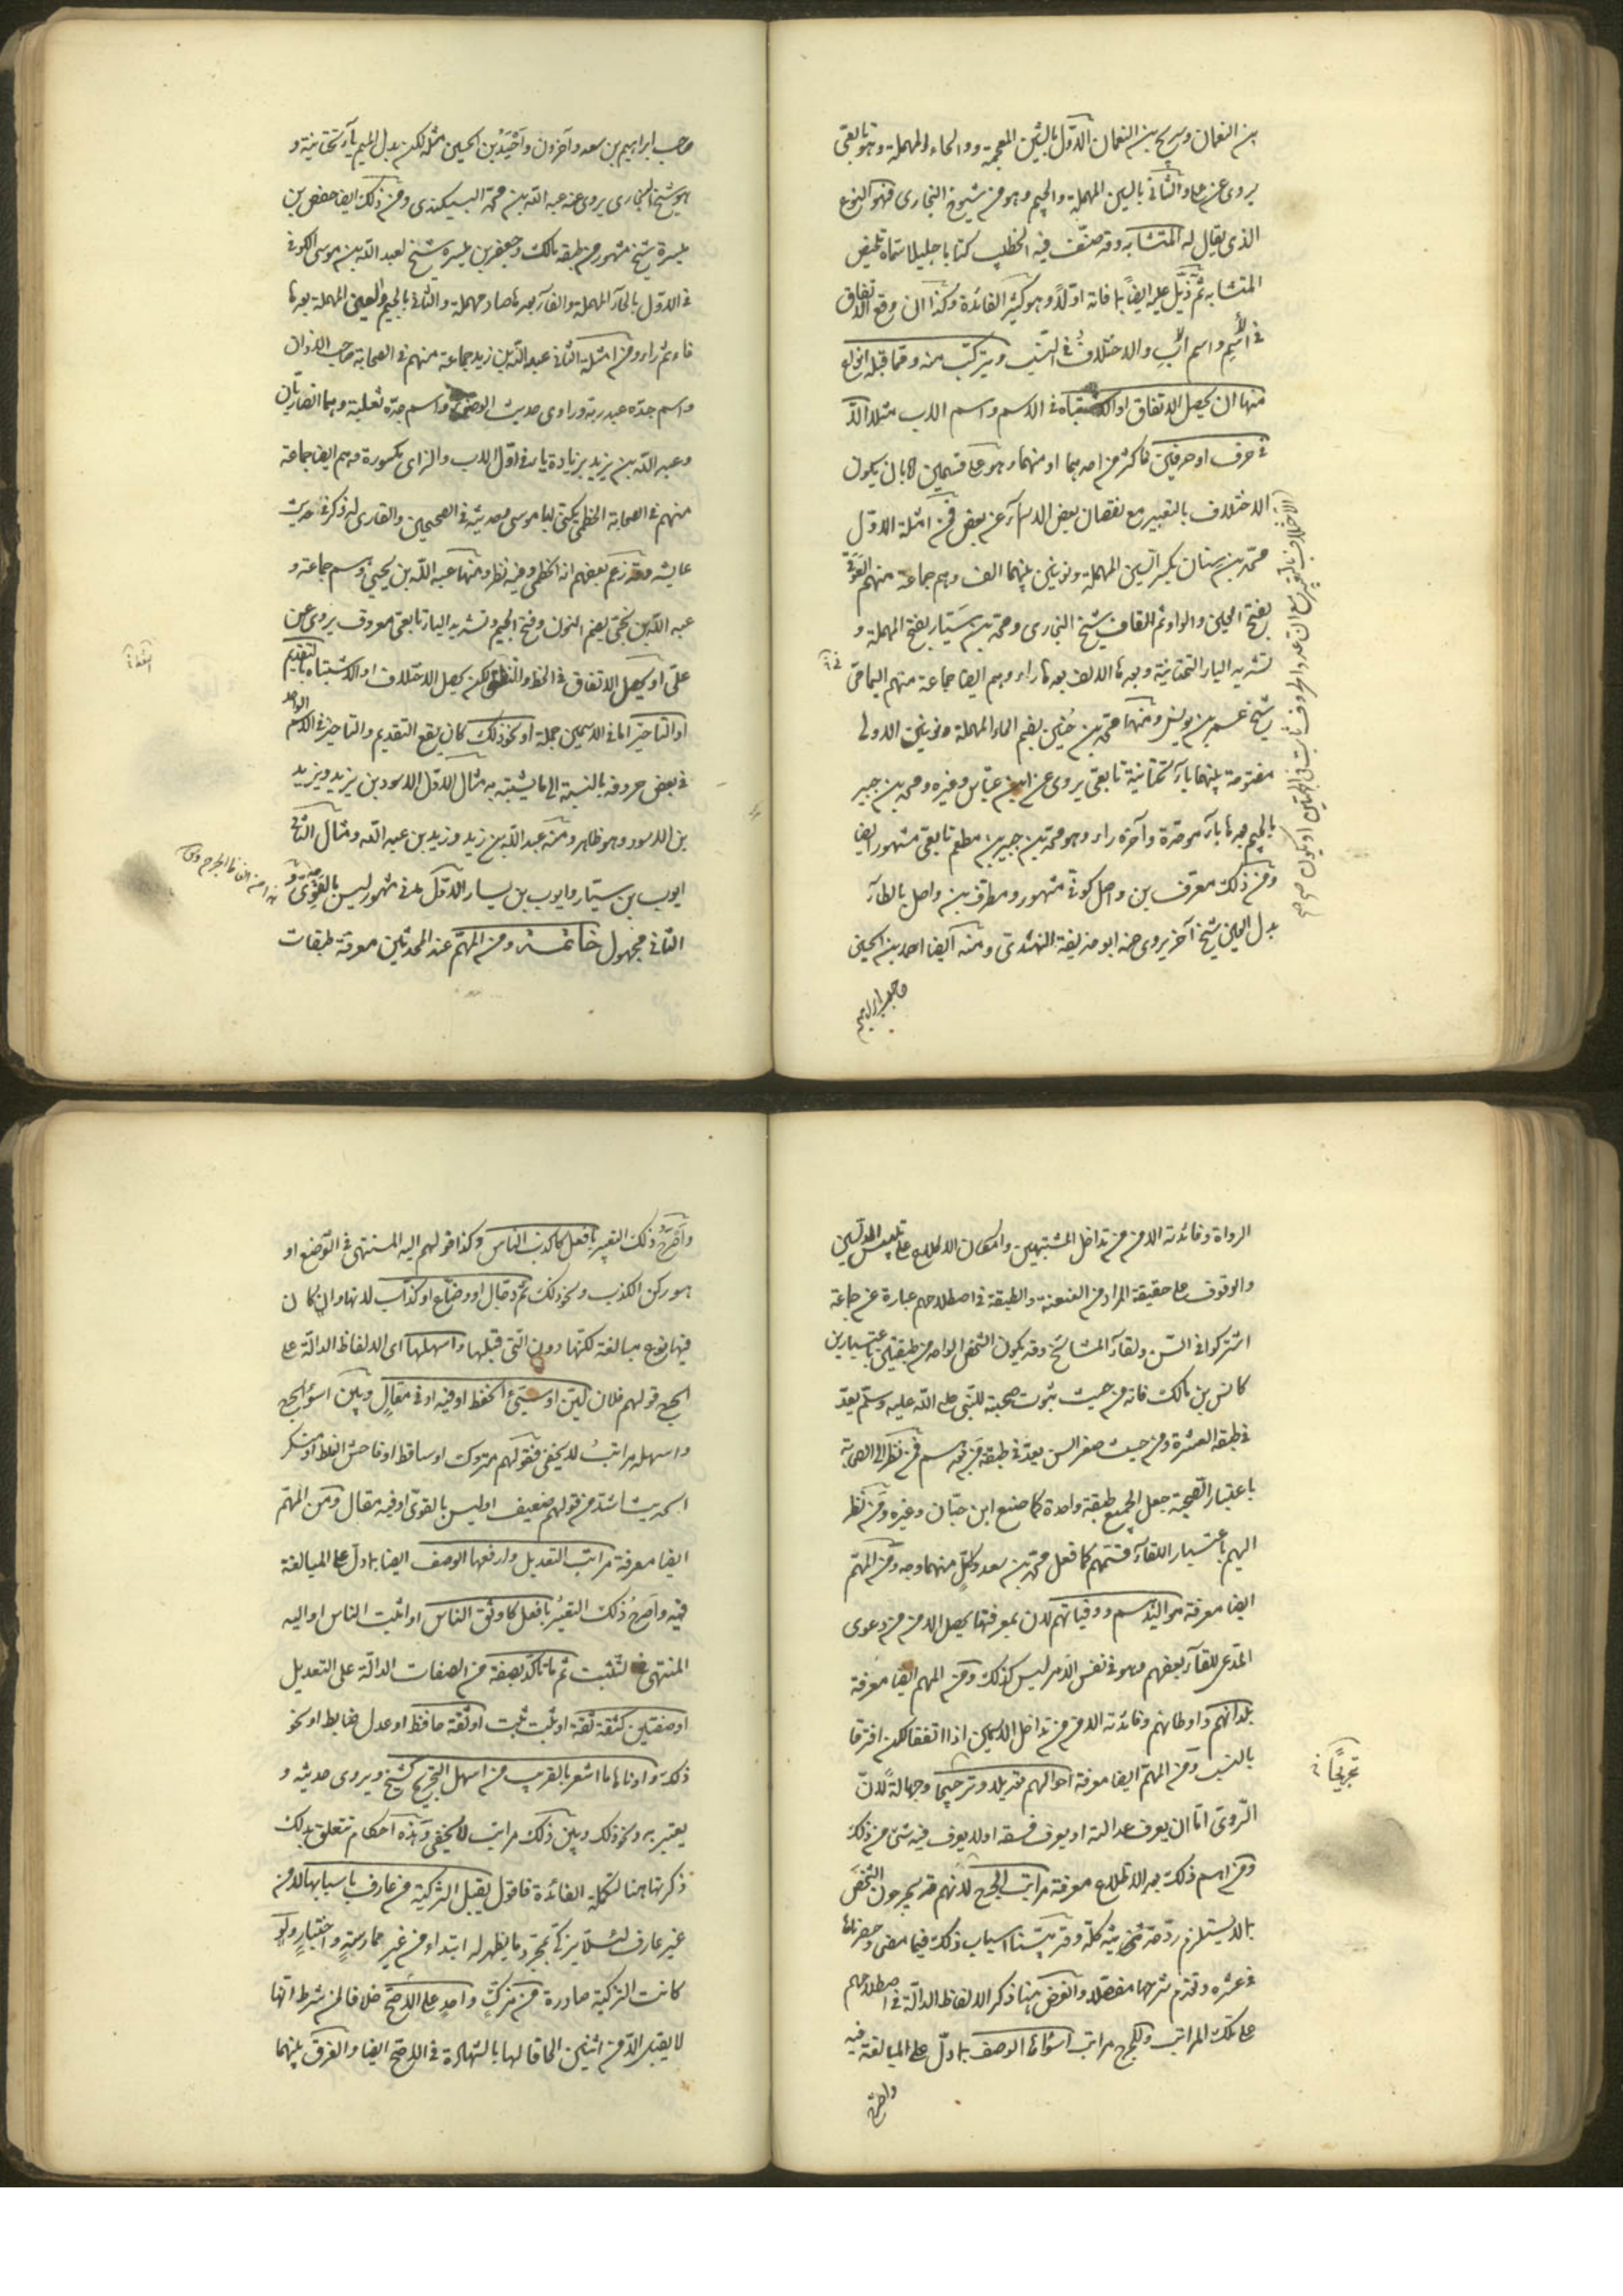 بن النعمان وسريج بن النعمان الاول بالشين المعجمة والحاء المهملة وهو تابعى
يروى عن على والثانى بالسين المهملة والجيم وهو من شيوخ البخارى فهو النوع
الذى يقال له المتشابه وقد صنف فيه الخطيب كتابا جليلا سماه تلخيص
المتشابه ثم ذيل عليه ايضا بما فاته اولا وهو كثير الفائدة وكذا ان وقع الاتفاق
فى الاسم واسم الاب والاختلاف فى النسب ويتركب منه ومما قبله انواع
منها ان يحصل الاتفاق او الاشتباه فى الاسم واسم الاب مثلا الا
فى حرف او حرفين فاكثر من احدهما او منهما وهو على قسمين اما بان يكون
الاختلاف بالتغيير مع نقصان بعض الاسماء عن بعض فمن امثلة الاول
محمد بن سنان بكسر السين المهملة ونونين بينهما الف وهم جماعة منهم العوقى
بفتح العين والواو ثم القاف شيخ البخارى ومحمد بن سيار بفتح المهملة و
تشديد الياء التحتانية وبعد الالف راء وهم ايضا جماعة منهم اليمامى
شيخ عمر بن يونس ومنها محمد بن حنين بضم الحاء المهملة ونونين الاولى
مفتوحة بينهما ياء تحتانية تابعى يروى عن ابن عباس وغيره ومحمد بن جبير
بالجيم بعدها باء موحدة وآخره راء وهو محمد بن جبير بن مطعم تابعى مشهور ايضا
ومن ذلك معرف بن واصل كوفى مشهور ومطرف بن واصل بالطاء
بدل العين شيخ آخر يروى عنه ابو حذيفة النهدى ومنه ايضا احمد بن الحسين
صاحب ابراهيم
صاحب ابراهيم بن سعد وآخرون واحيد بن الحسين مثله لكن بدل الميم ياء تحتانية و
هو شيخ البخارى يروى عنه عبد الله بن محمد البيكندى ومن ذلك ايضا حفص بن
ميسرة شيخ مشهور من طبقة مالك وجعفر بن ميسرة شيخ لعبيد الله بن موسى الكوفى
الاول بالحاء المهملة والفاء بعدها صاد مهملة والثانى بالجيم والعين المهملة بعدها
فاء ثم راء ومن امثلة الثانى عبد الله بن زيد جماعة منهم فى الصحابة صاحب الاذان
واسم جده عبد ربه وراوى حديث الوضوء واسم جده ثعلبة وهما انصاريان
وعبد الله بن يزيد بزيادة ياء فى اول الاب والزاى مكسورة وهم ايضا جماعة
منهم فى الصحابة الخطمى يكنى ابا موسى وحديثه فى الصحيحين والقارى له ذكر فى حديث
عايشة وقد زعم بعضهم انه الخطمى وفيه نظر ومنها عبد الله بن يحيى وهم جماعة و
عبد الله بن نجى بضم النون وفتح الجيم وتشديد الياء تابعى معروف يروى عن
على او يحصل الاتفاق فى الخط والنطق لكن يحصل الاختلاف او الاشتباه بالتقديم
او التاخير اما فى الاسمين جملة او نحو ذلك كان يقع التقديم والتاخير فى الاسم الواحد
فى بعض حروفه بالنسبة الى ما يشتبه به مثال الاول الاسود بن يزيد ويزيد
بن الاسود وهو ظاهر ومنه عبد الله بن زيد وزيد بن عبد الله ومثال الثانى
ايوب بن سيار وايوب بن يسار الاول مدنى مشهور ليس بالقوى و
الثانى مجهول خاتمة ومن المهم عند المحدثين معرفة طبقات
الرواة وفائدته الامن من تداخل المشتبهين وامكان الاطلاع على تبيين المدلسين
والوقوف على حقيقة المراد من العنعنة والطبقة فى اصطلاحهم عبارة عن جماعة
اشتركوا فى السن ولقاء المشائخ وقد يكون الشخص الواحد من طبقتين باعتبارين
كانس بن مالك فانه من حيث ثبوت صحبته للنبى صلى الله عليه وسلم يعد
فى طبقة العشرة ومن حيث صغر السن يعد فى طبقة من بعدهم فمن نظر الى الصحابة
باعتبار الصحبة جعل الجميع طبقة واحدة كما صنع ابن حبان وغيره ومن نظر
اليهم باعتبار اللقاء قسمهم كما فعل محمد بن سعد ولكل منهما وجه ومن المهم
ايضا معرفة مواليدهم ووفياتهم لان بمعرفتها يحصل الامن من دعوى
المدعى للقاء بعضهم وهو فى نفس الامر ليس كذلك ومن المهم ايضا معرفة
بلدانهم واوطانهم وفائدته الامن من تداخل الاسمين اذا اتفقا لكن افترقا
بالنسب ومن المهم ايضا معرفة احوالهم تعديلا وترجيحا وجهالة لان
تجريحا
الراوى اما ان يعرف عدالته او يعرف فسقه او لا يعرف فيه شئ من ذلك
ومن اهم ذلك بعد الاطلاع معرفة مراتب الجرح لانهم قد يجرحون الشخص
بما لا يستلزم رد حديثه كله وقد بينا اسباب ذلك فيما مضى وحصرناها
فى عشرة وتقدم شرحها مفصلا والغرض هنا ذكر الالفاظ الدالة فى اصطلاحهم
على تلك المراتب وللجرح مراتب اسوأها الوصف بما دل على المبالغة فيه
واصرح
واصرح ذلك التعبير بافعل كاكذب الناس وكذا قولهم اليه المنتهى فى الوضع او
هو ركن الكذب ونحو ذلك ثم دجال او وضاع او كذاب لانها وان كان
فيها نوع مبالغة لكنها دون التى قبلها واسهلها اى الالفاظ الدالة على
الجرح قولهم فلان لين او سيئ الحفظ او فيه ادنى مقال وبين اسوأ الجرح
واسهله مراتب لا يخفى فقولهم متروك او ساقط او فاحش الغلط او منكر
الحديث اشد من قولهم ضعيف او ليس بالقوى او فيه مقال ومن المهم
ايضا معرفة مراتب التعديل وارفعها الوصف ايضا بما دل على المبالغة
فيه واصرح ذلك التعبير بافعل كاوثق الناس او اثبت الناس او اليه
المنتهى فى التثبت ثم ما تاكد بصفة من الصفات الدالة على التعديل
او صفتين كثقة ثقة او ثبت ثبت او ثقة حافظ او عدل ضابط او نحو
ذلك وادناها ما اشعر بالقرب من اسهل التجريح كشيخ ويروى حديثه و
يعتبر به ونحو ذلك وبين ذلك مراتب لا يخفى وهذه احكام تتعلق بذلك
ذكرتها هنا لتكملة الفائدة فاقول يقبل التزكية من عارف باسبابها لا من
غير عارف لئلا يزكى بمجرد ما يظهر له ابتداء من غير ممارسة واختبار ولو
كانت التزكية صادرة من مزك واحد على الاصح خلافا لمن شرط انها
لا يقبل الا من اثنين الحاقا لها بالشهادة فى الاصح ايضا والفرق بينهما